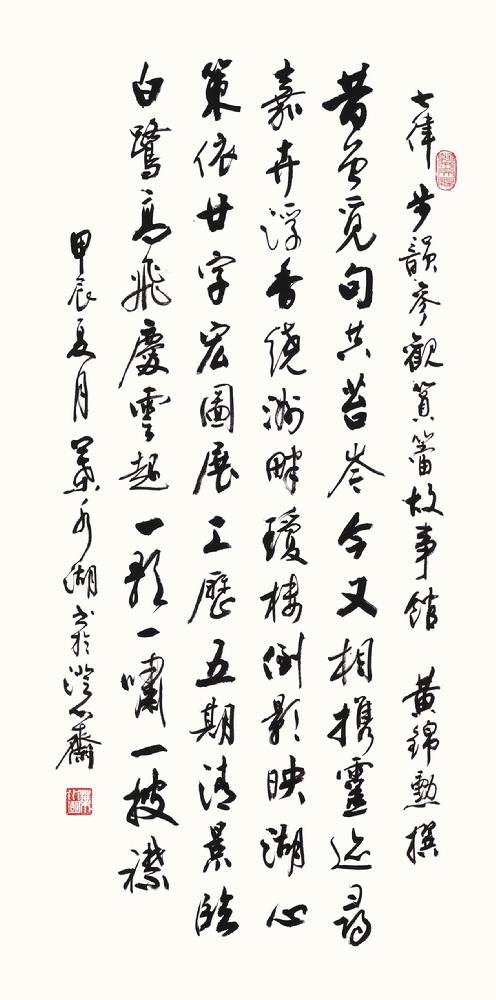 七律 步韻參觀篔簹故事館 黃錦勳撰
昔曾覓句共苔岑今又相攜靈迹尋
嘉卉浮香繞洲畔瓊樓倒影映湖心
策依廿字宏圖展工歷五期清景臨
白鷺高飛慶雲起一歌一嘯一披襟
甲辰夏月葉水湖書於澄心齋